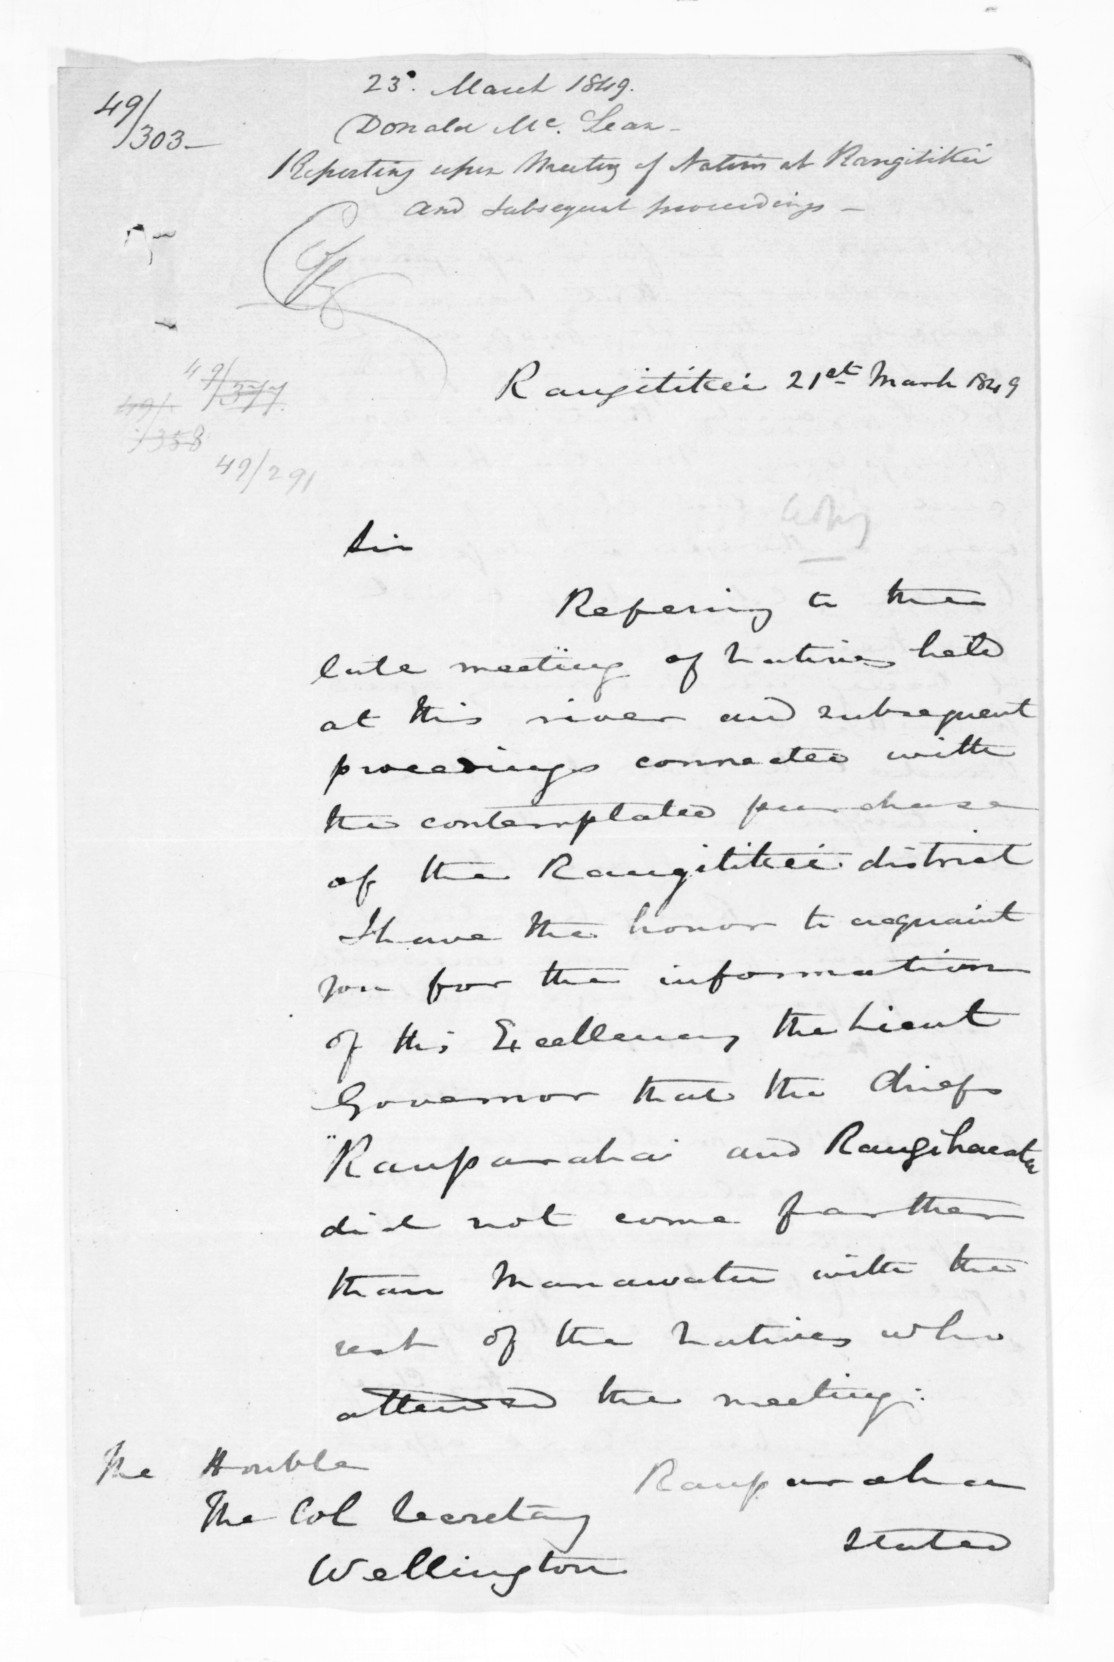 49/303 -
23d. March 1849.
Donald Mc. Lean -
Reporting upon Meeting of Natives at Rangitikei
and subsequent proceedings -
49/377
49/358
49/291
Rangitikei 21st March 1849
Copy
Sir
Refering to the
late meeting of Natives held
at this river and subsequent
proceedings connected with
the contemplated purchase
of the Rangitikei district
I have the honor to acquaint
you for the information
of His Excellency the Lieut
Governor that the Chiefs
"Rauparaha" and Rangihaeata
did not come farther
than Manawatu with the
rest of the Natives who
attended the meeting.
Rauparaha
stated
The Honble
The Col Secretary
Wellington